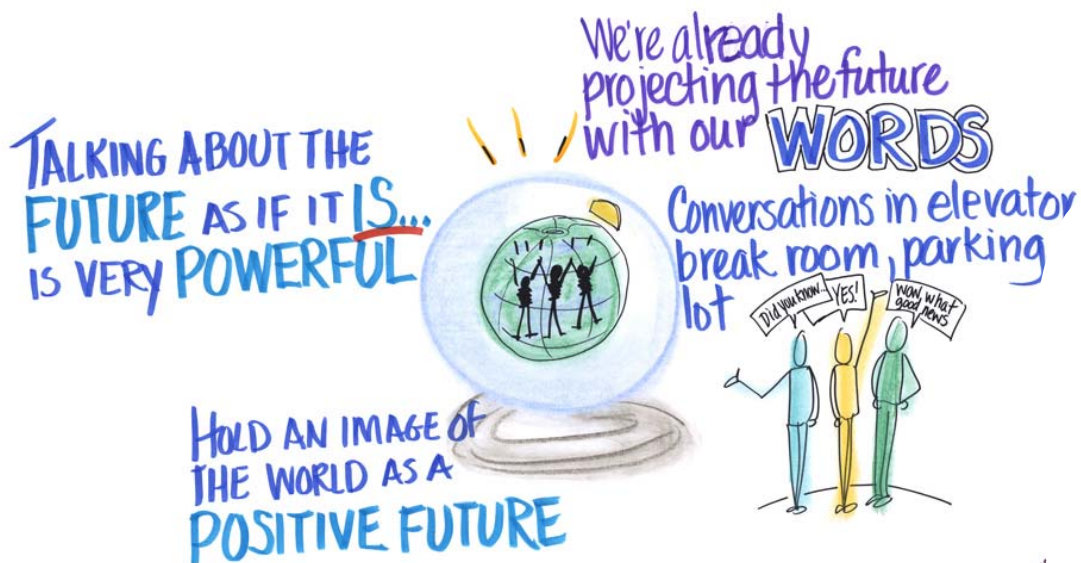 TALKING ABOUT THE
FUTURE AS IF IT IS...
IS VERY POWERFUL
We're already
projecting the future
with our WORDS
Conversations in elevator
break room, parking
lot
Did you know...
YES!
Wow, what
good news
HOLD AN IMAGE OF
THE WORLD AS A
POSITIVE FUTURE